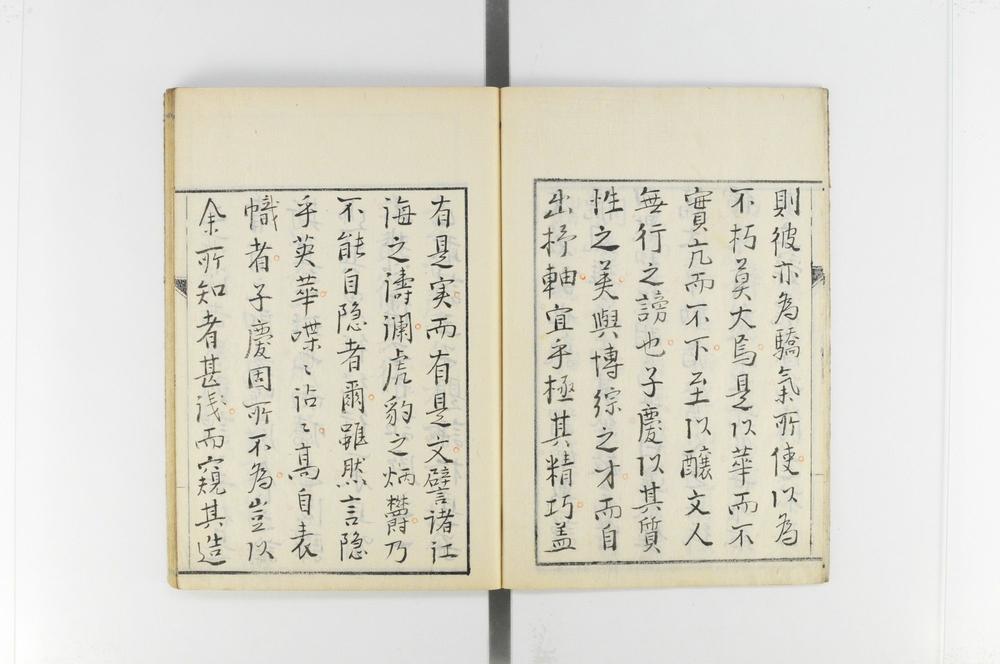 則彼亦為驕氣所使以為
不朽莫大焉是以華而不
實亢而不下至以釀文人
無行之謗也子慶以其質
性之美與博綜之才而自
出抒軸宜乎極其精巧盖
有是实而有是文譬诸江
海之濤澜虎豹之炳欎乃
不能自隐者爾雖然言隐
乎英華喋〻沾〻高自表
幟者子慶固所不為豈以
余所知者甚浅而窺其造